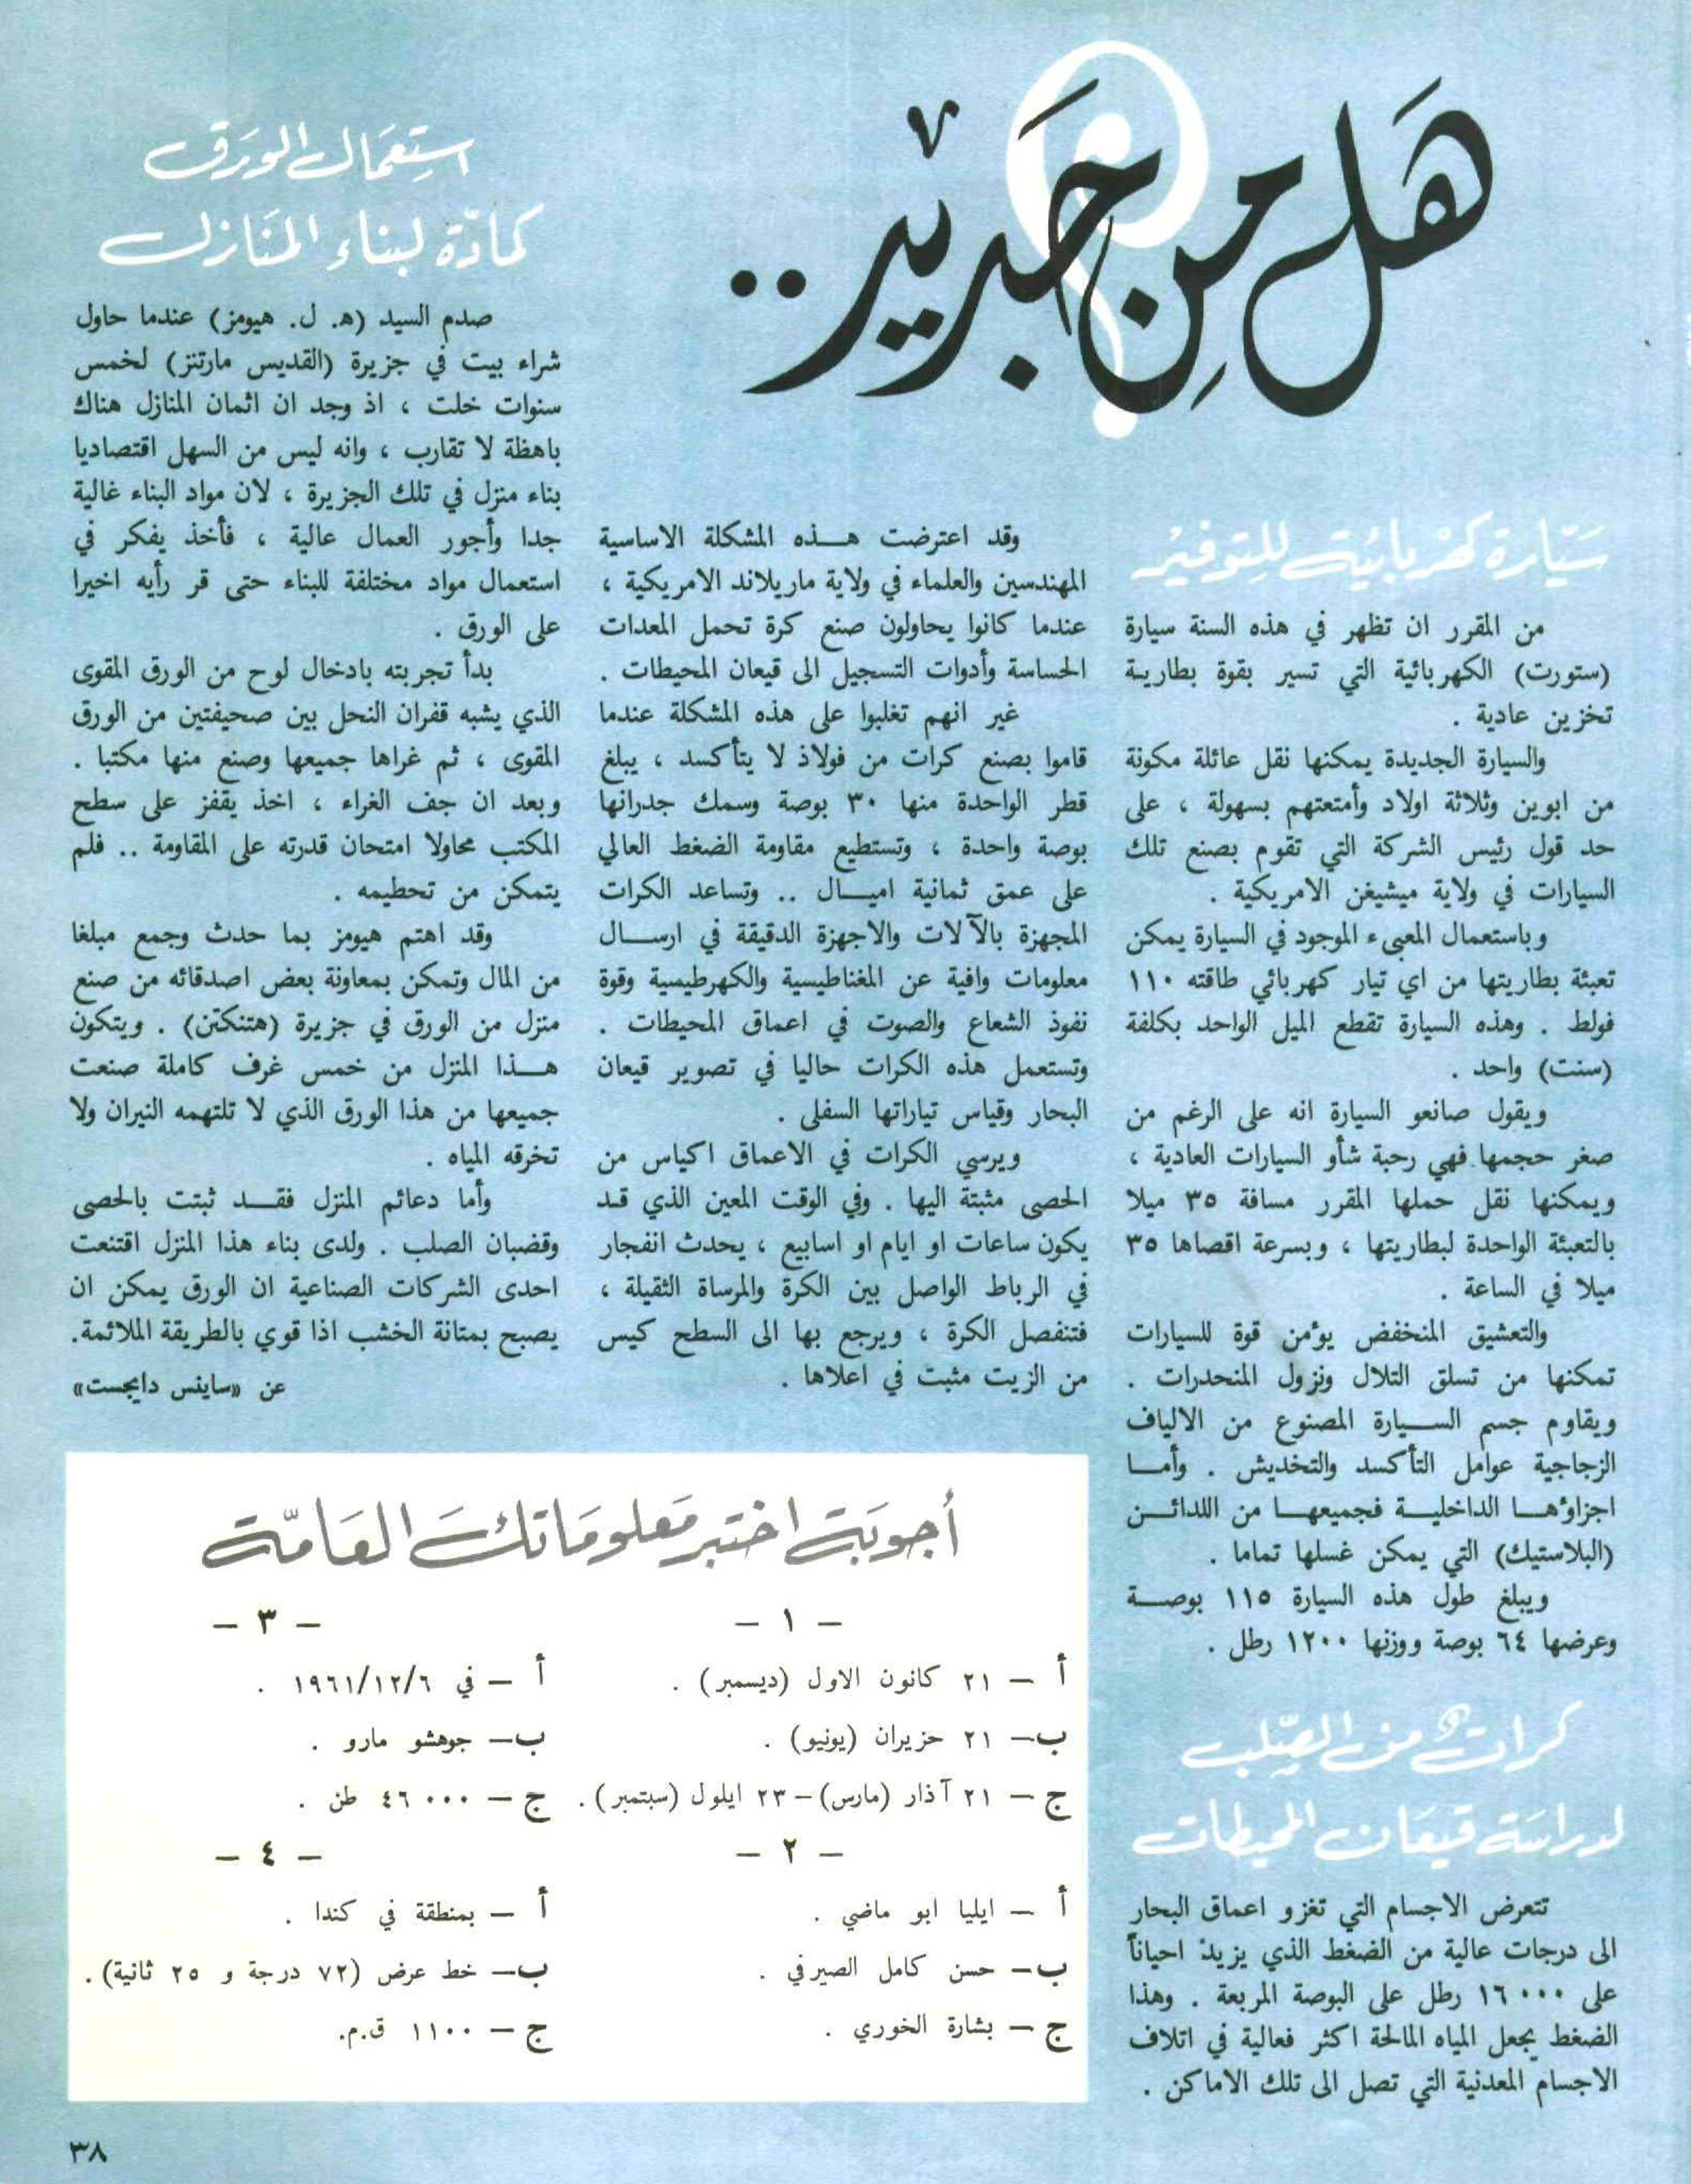 هَل مِن جَديد..
سَيّارة كهْربائيّة للتوفيْر
من المقرر ان تظهر في هذه السنة سيارة
(ستورت) الكهربائية التي تسير بقوة بطارية
تخزين عادية .
والسيارة الجديدة يمكنها نقل عائلة مكونة
من ابوين وثلاثة اولاد وأمتعتهم بسهولة ، على
حد قول رئيس الشركة التي تقوم بصنع تلك
السيارات في ولاية ميشيغن الامريكية .
وباستعمال المعبىء الموجود في السيارة يمكن
تعبئة بطاريتها من اي تيار كهربائي طاقته ١١٠
فولط . وهذه السيارة تقطع الميل الواحد بكلفة
(سنت) واحد .
ويقول صانعو السيارة انه على الرغم من
صغر حجمها فهي رحبة شأو السيارات العادية ،
ويمكنها نقل حملها المقرر مسافة ٣٥ ميلا
بالتعبئة الواحدة لبطاريتها ، وبسرعة اقصاها ٣٥
ميلا في الساعة .
والتعشيق المنخفض يوٴمن قوة للسيارات
تمكنها من تسلق التلال ونزول المنحدرات .
ويقاوم جسم السيارة المصنوع من الالياف
الزجاجية عوامل التأكسد والتخديش . وأما
اجزاوٴها الداخلية فجميعها من اللدائن
(البلاستيك) التي يمكن غسلها تماما .
ويبلغ طول هذه السيارة ١١٥ بوصة
وعرضها ٦٤ بوصة ووزنها ١٢٠٠ رطل .
كراتٌ من الصّلب
لدراسَة قيعَان المحيطات
تتعرض الاجسام التي تغزو اعماق البحار
الى درجات عالية من الضغط الذي يزيد احياناً
على ١٦٠٠٠ رطل على البوصة المربعة . وهذا
الضغط يجعل المياه المالحة اكثر فعالية في اتلاف
الاجسام المعدنية التي تصل الى تلك الاماكن .
وقد اعترضت هذه المشكلة الاساسية
المهندسين والعلماء في ولاية ماريلاند الامريكية ،
عندما كانوا يحاولون صنع كرة تحمل المعدات
الحساسة وأدوات التسجيل الى قيعان المحيطات .
غير انهم تغلبوا على هذه المشكلة عندما
قاموا بصنع كرات من فولاذ لا يتأكسد ، يبلغ
قطر الواحدة منها ٣٠ بوصة وسمك جدرانها
بوصة واحدة ، وتستطيع مقاومة الضغط العالي
على عمق ثمانية اميال .. وتساعد الكرات
المجهزة بالآلات والاجهزة الدقيقة في ارسال
معلومات وافية عن المغناطيسية والكهرطيسية وقوة
نفوذ الشعاع والصوت في اعماق المحيطات .
وتستعمل هذه الكرات حاليا في تصوير قيعان
البحار وقياس تياراتها السفلى .
ويرسي الكرات في الاعماق اكياس من
الحصى مثبتة اليها . وفي الوقت المعين الذي قد
يكون ساعات او ايام او اسابيع ، يحدث انفجار
في الرباط الواصل بين الكرة والمرساة الثقيلة ،
فتنفصل الكرة ، ويرجع بها الى السطح كيس
من الزيت مثبت في اعلاها .
استِعمَال الورَق
كمادّة لبناء المنَازل
صدم السيد (ه. ل. هيومز) عندما حاول
شراء بيت في جزيرة (القديس مارتنز) لخمس
سنوات خلت ، اذ وجد ان اثمان المنازل هناك
باهظة لا تقارب ، وانه ليس من السهل اقتصاديا
بناء منزل في تلك الجزيرة ، لان مواد البناء غالية
جدا وأجور العمال عالية ، فأخذ يفكر في
استعمال مواد مختلفة للبناء حتى قر رأيه اخيرا
على الورق .
بدأ تجربته بادخال لوح من الورق المقوى
الذي يشبه قفران النحل بين صحيفتين من الورق
المقوى ، ثم غراها جميعها وصنع منها مكتبا .
وبعد ان جف الغراء ، اخذ يقفز على سطح
المكتب محاولا امتحان قدرته على المقاومة .. فلم
يتمكن من تحطيمه .
وقد اهتم هيومز بما حدث وجمع مبلغا
من المال وتمكن بمعاونة بعض اصدقائه من صنع
منزل من الورق في جزيرة (هتنكتن) . ويتكون
هذا المنزل من خمس غرف كاملة صنعت
جميعها من هذا الورق الذي لا تلتهمه النيران ولا
تخرقه المياه .
وأما دعائم المنزل فقد ثبتت بالحصى
وقضبان الصلب . ولدى بناء هذا المنزل اقتنعت
احدى الشركات الصناعية ان الورق يمكن ان
يصبح بمتانة الخشب اذا قوي بالطريقة الملائمة.
عن «ساينس دايجست»
أجوبَة اختبر مَعلومَاتكَ العَامّة
– ١ –
أ – ٢١ كانون الاول (ديسمبر) .
ب– ٢١ حزيران (يونيو) .
ج – ٢١ آذار (مارس)– ٢٣ ايلول (سبتمبر) .
– ٢ –
أ – ايليا ابو ماضي .
ب– حسن كامل الصيرفي .
ج – بشارة الخوري .
– ٣ –
أ – في ١٩٦١/١٢/٦ .
ب– جوهشو مارو .
ج – ٤٦٠٠٠ طن .
– ٤ –
أ – بمنطقة في كندا .
ب– خط عرض (٧٢ درجة و ٢٥ ثانية) .
ج – ١١٠٠ ق.م.
٣٨